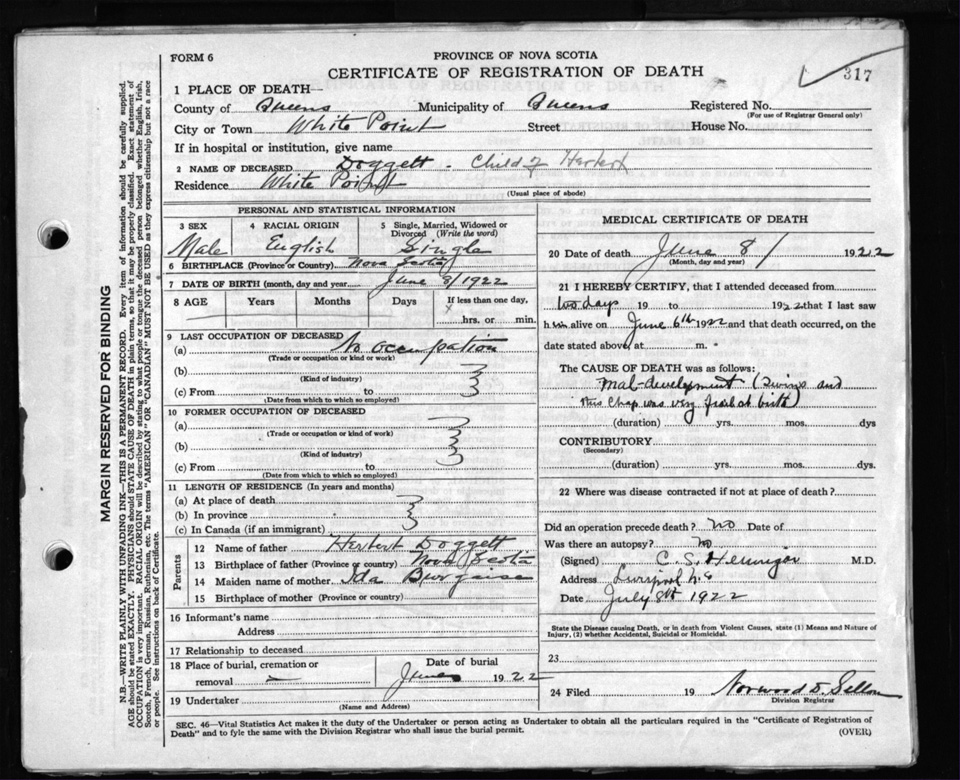 FORM 6
PROVINCE OF NOVA SCOTIA
CERTIFICATE OF REGISTRATION OF DEATH
317
1 PLACE OF DEATH—
County of Queens Municipality of Queens Registered No.
(For use of Registrar General only)
City or Town White Point Street House No.
If in hospital or institution, give name
2 NAME OF DECEASED Doggett - Child of Herbert
Residence White Point
(Usual place of abode)
PERSONAL AND STATISTICAL INFORMATION
3 SEX Male
4 RACIAL ORIGIN English
5 Single, Married, Widowed or Divorced (Write the word) Single
6 BIRTHPLACE (Province or Country) Nova Scotia
7 DATE OF BIRTH (month, day and year) June 8/1922
8 AGE Years Months Days If less than one day, hrs. or min.
9 LAST OCCUPATION OF DECEASED
(a) No occupation
(Trade or occupation or kind of work)
(b)
(Kind of industry)
(c) From to
(Date from which to which so employed)
10 FORMER OCCUPATION OF DECEASED
(a)
(Trade or occupation or kind of work)
(b)
(Kind of industry)
(c) From to
(Date from which to which so employed)
11 LENGTH OF RESIDENCE (In years and months)
(a) At place of death
(b) In province
(c) In Canada (if an immigrant)
Parents
12 Name of father Herbert Doggett
13 Birthplace of father (Province or country) Nova Scotia
14 Maiden name of mother Ida
15 Birthplace of mother (Province or country)
16 Informant's name
Address
17 Relationship to deceased
18 Place of burial, cremation or removal
Date of burial
June 1922
19 Undertaker
(Name and Address)
MEDICAL CERTIFICATE OF DEATH
20 Date of death June 8/ 1922
(Month, day and year)
21 I HEREBY CERTIFY, that I attended deceased from
two days 19 to 1922 that I last saw
him alive on June 6th 1922 and that death occurred, on the
date stated above, at m.
The CAUSE OF DEATH was as follows:
Mal-development (Twins and
this chap was very frail at birth)
(duration) yrs. mos. dys
CONTRIBUTORY
(Secondary)
(duration) yrs. mos. dys.
22 Where was disease contracted if not at place of death?
Did an operation precede death? No Date of
Was there an autopsy? no
(Signed) C. S. Hennigar M.D.
Address Liverpool N.S
Date July 8th 1922
State the Disease causing Death, or in death from Violent Causes, state (1) Means and Nature of
Injury, (2) whether Accidental, Suicidal or Homicidal.
23
24 Filed 19 Norwood D.
Division Registrar
SEC. 46—Vital Statistics Act makes it the duty of the Undertaker or person acting as Undertaker to obtain all the particulars required in the "Certificate of Registration of
Death" and to fyle the same with the Division Registrar who shall issue the burial permit.
(OVER)
MARGIN RESERVED FOR BINDING
N.B.—WRITE PLAINLY WITH UNFADING INK—THIS IS A PERMANENT RECORD. Every item of information should be carefully supplied.
AGE should be stated EXACTLY. PHYSICIANS should STATE CAUSE OF DEATH in plain terms, so that it may be properly classified. Exact statement of
OCCUPATION is very important. RACIAL ORIGIN will be described by stating to what people or tongue the deceased person belonged whether English, Irish,
Scotch, French, German, Russian, Ruthenian, etc. The terms "AMERICAN" OR "CANADIAN" MUST NOT BE USED as they express citizenship but not a race
or people. See instructions on back of Certificate.